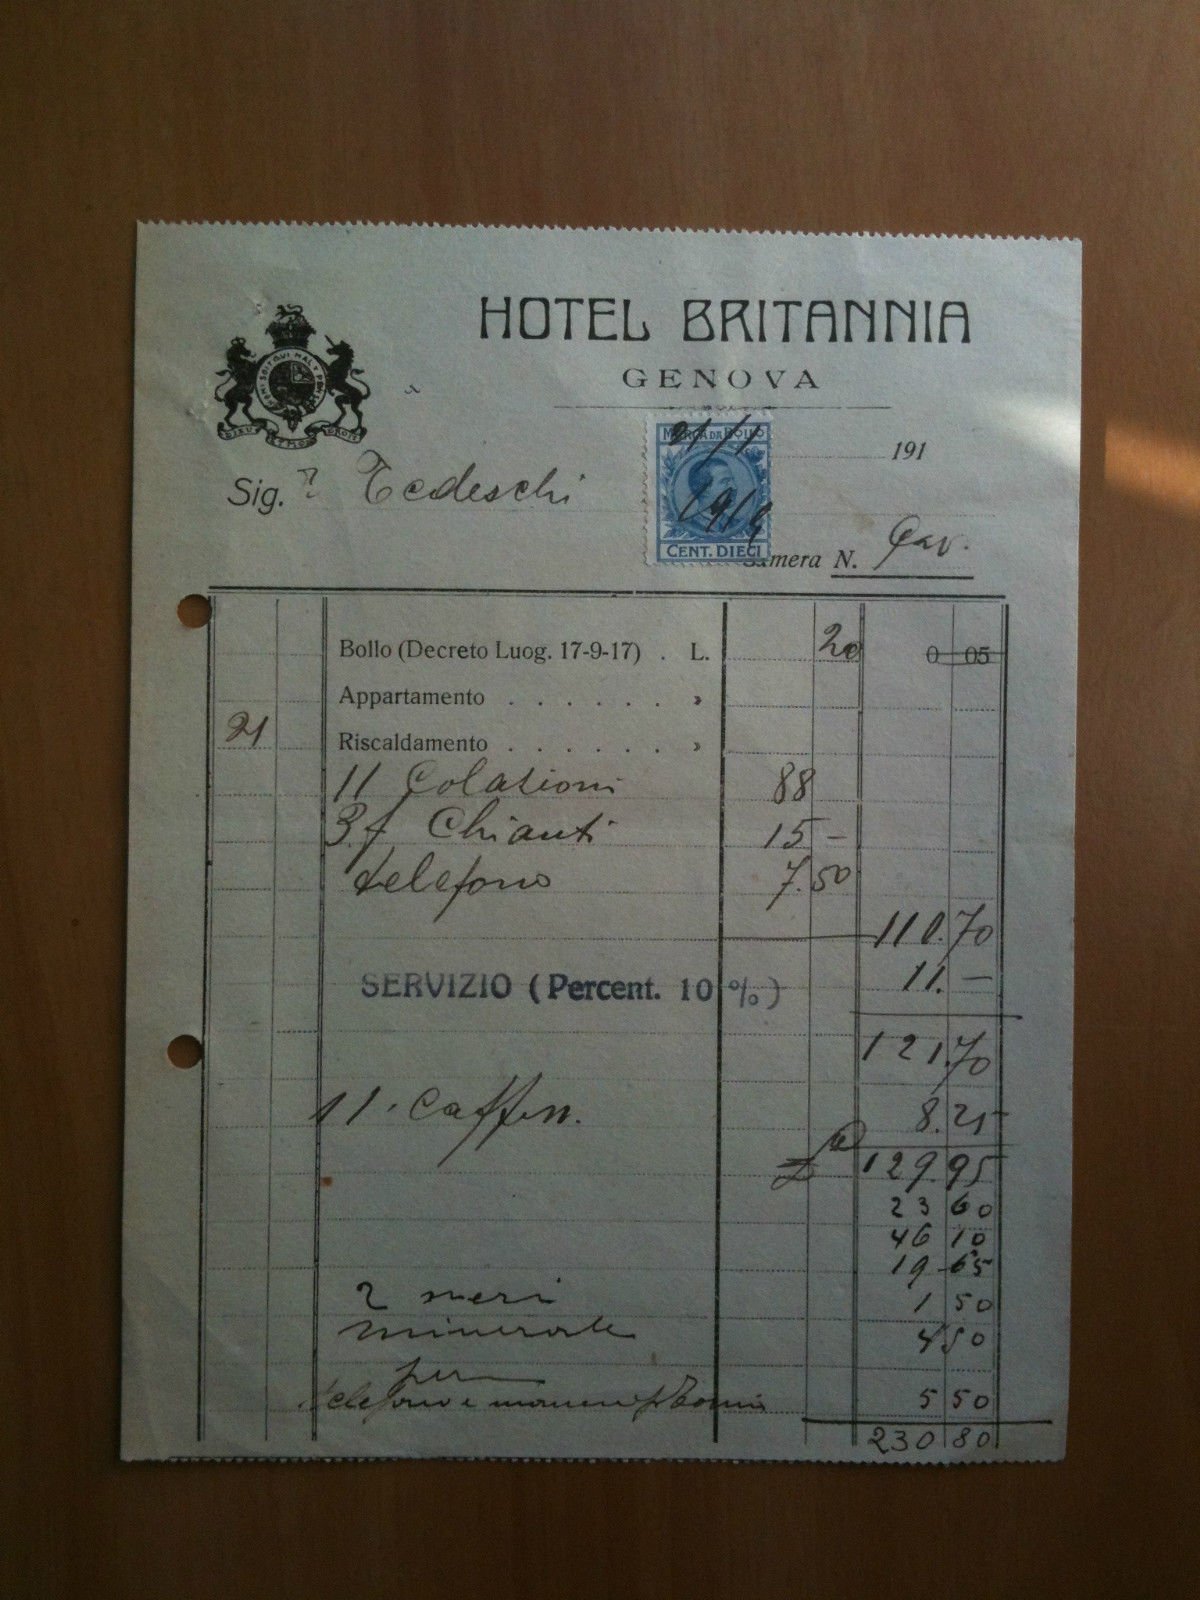 HOTEL BRITANNIA
GENOVA
HONI SOIT QUI MAL Y PENSE
DIEU ET MON DROIT
MARCA DA BOLLO
21/1
1919
CENT. DIECI
191
Sig. Tedeschi
Camera N.
Bollo (Decreto Luog. 17-9-17) . L. 20 0 05
Appartamento . . . . . . »
21 Riscaldamento . . . . . . »
11 Colazioni 88
3 f Chianti 15 –
telefono 7.50
110.70
SERVIZIO (Percent. 10 %) 11. –
121.70
11. Caffè 8.25
129.95
23 60
46 10
19 65
2 neri 1 50
minerale 4 50
telefono e 5 50
230 80